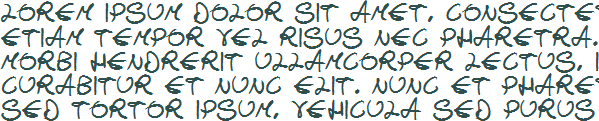 LOREM IPSUM DOLOR SIT AMET, CONSECTE
ETIAM TEMPOR VEL RISUS NEC PHARETRA.
MORBI HENDRERIT ULLAMCORPER LECTUS, I
CURABITUR ET NUNC ELIT. NUNC ET PHARE
SED TORTOR IPSUM, VEHICULA SED PURUS